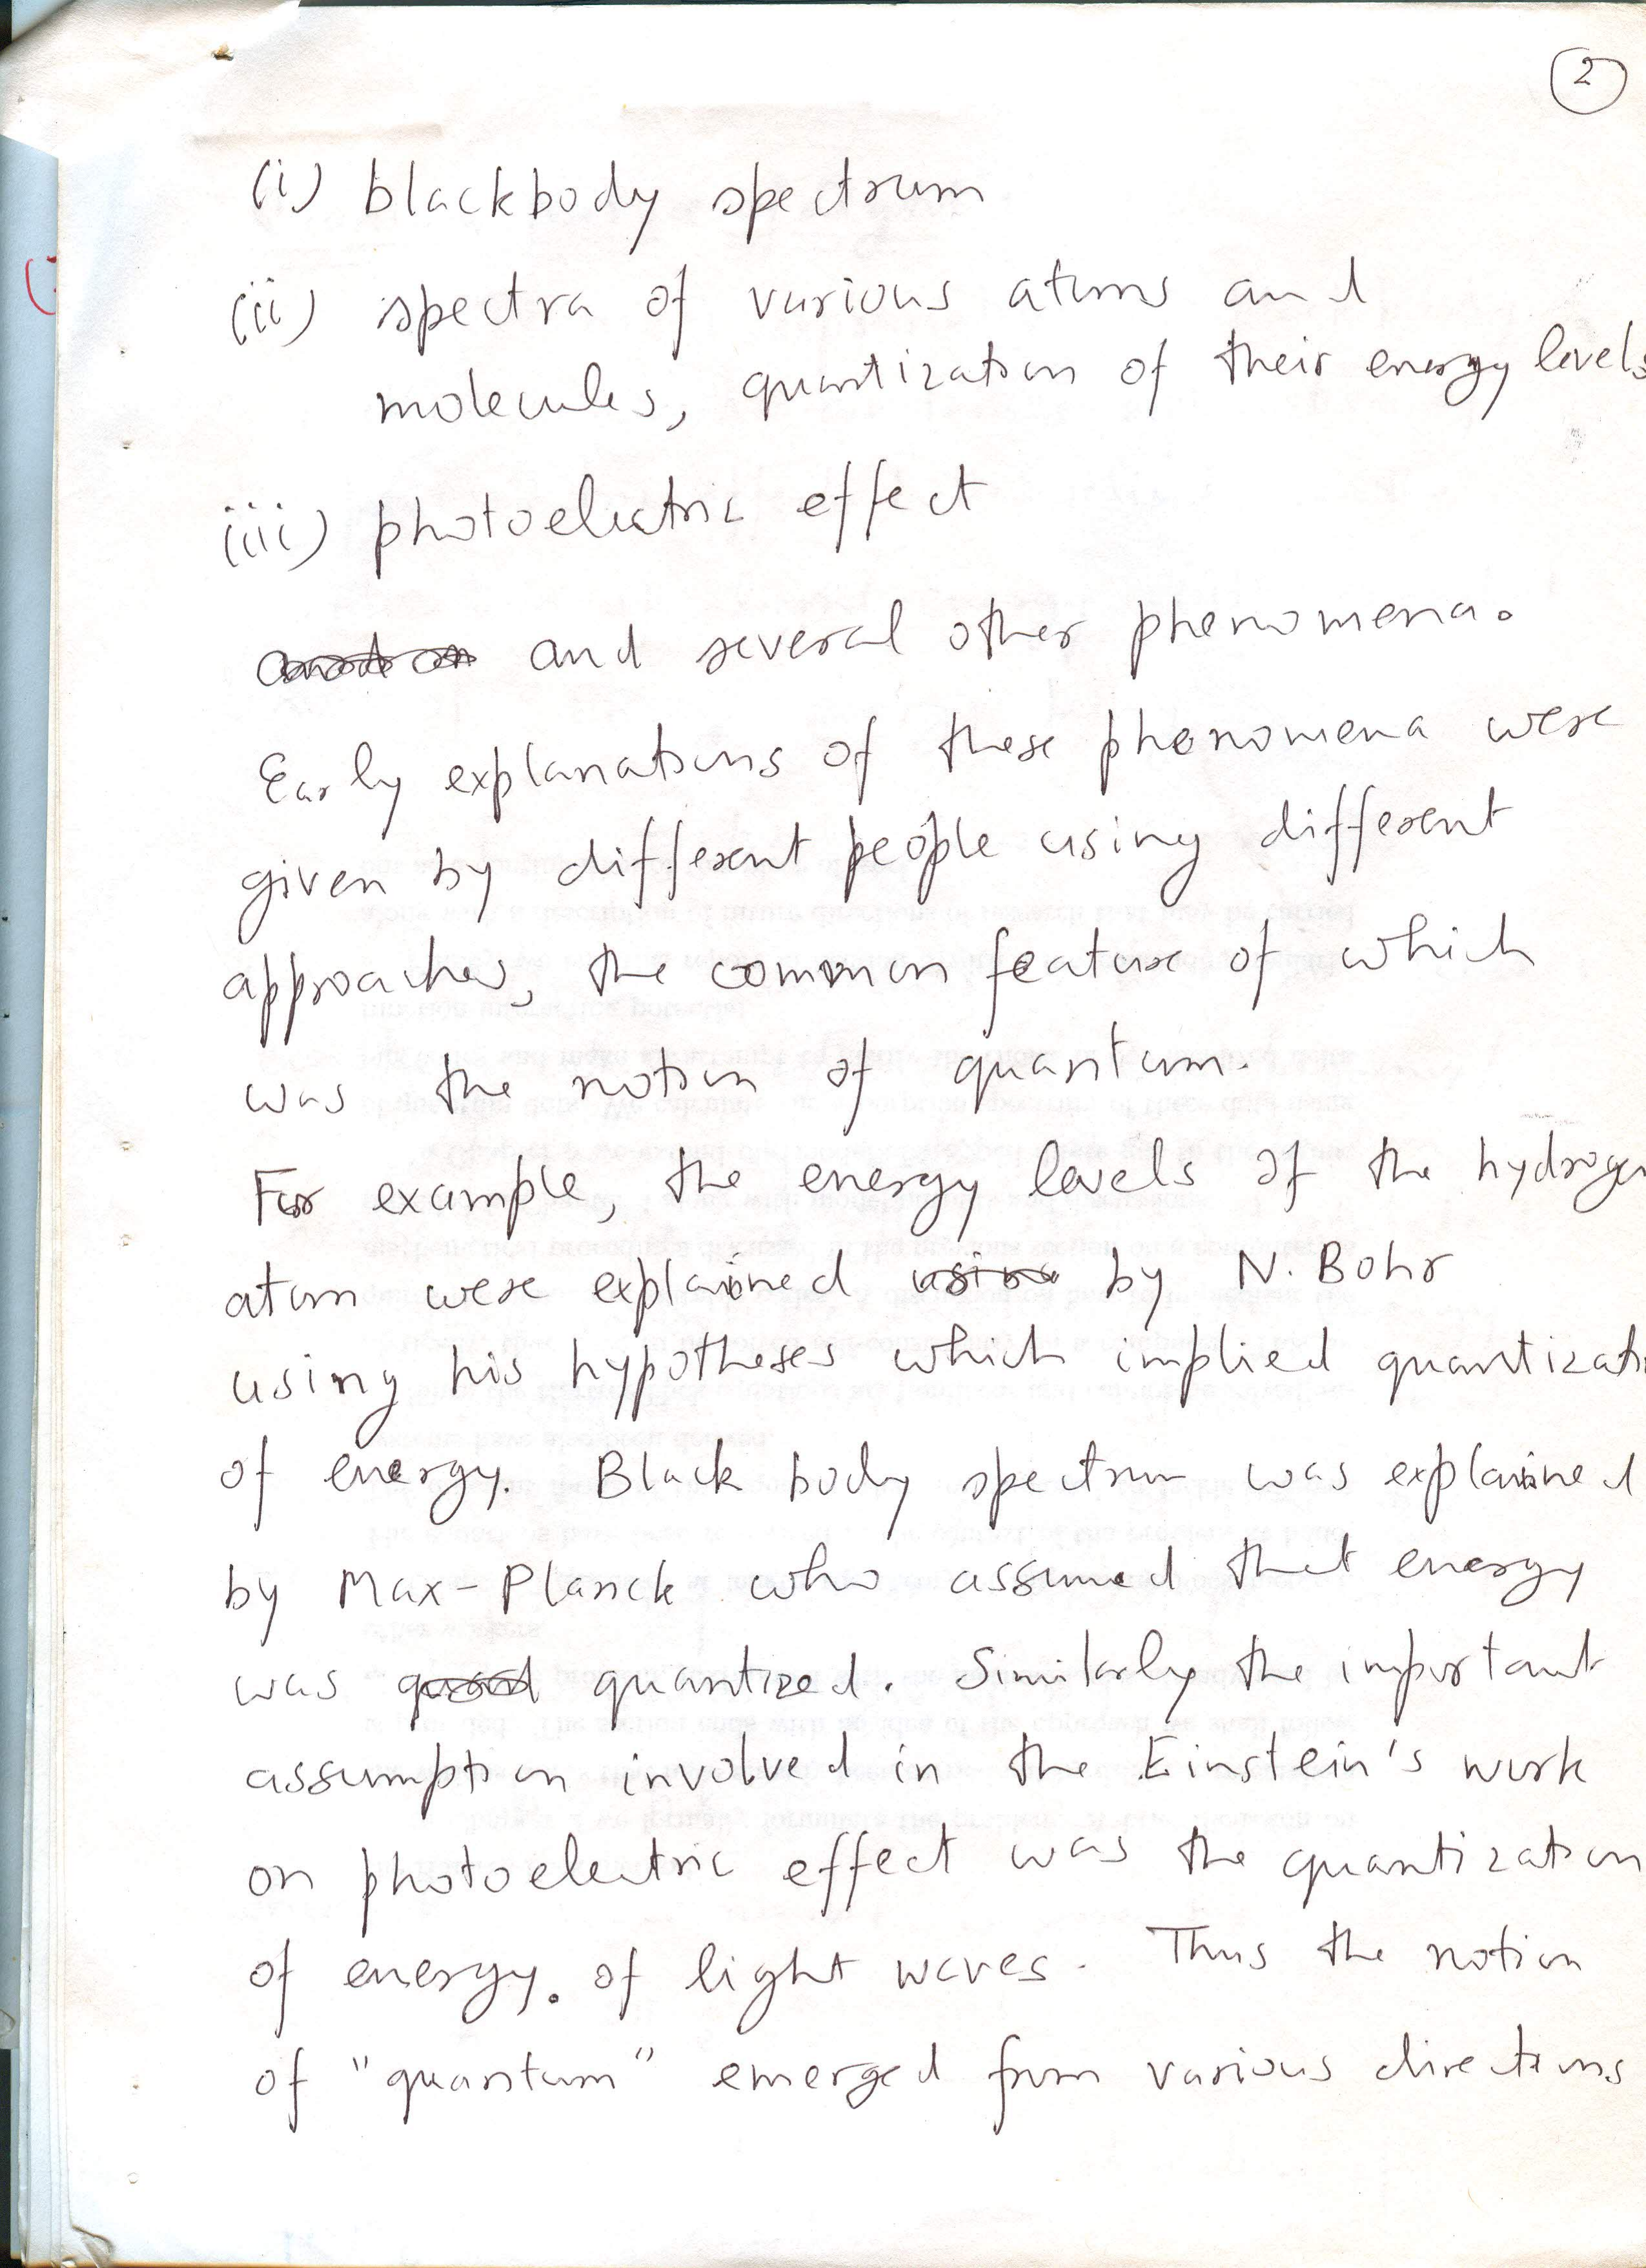 2
(i) blackbody spectrum
(ii) spectra of various atoms and
molecules, quantization of their energy levels
(iii) photoelectric effect
and several other phenomena.
Early explanations of these phenomena were
given by different people using different
approaches, the common feature of which
was the notion of quantum.
For example, the energy levels of the hydrogen
atom were explained by N. Bohr
using his hypotheses which implied quantizati
of energy. Black body spectrum was explained
by Max-Planck who assumed that energy
was quantized. Similarly the important
assumption involved in the Einstein's work
on photoelectric effect was the quantization
of energy. of light waves. Thus the notion
of "quantum" emerged from various directions